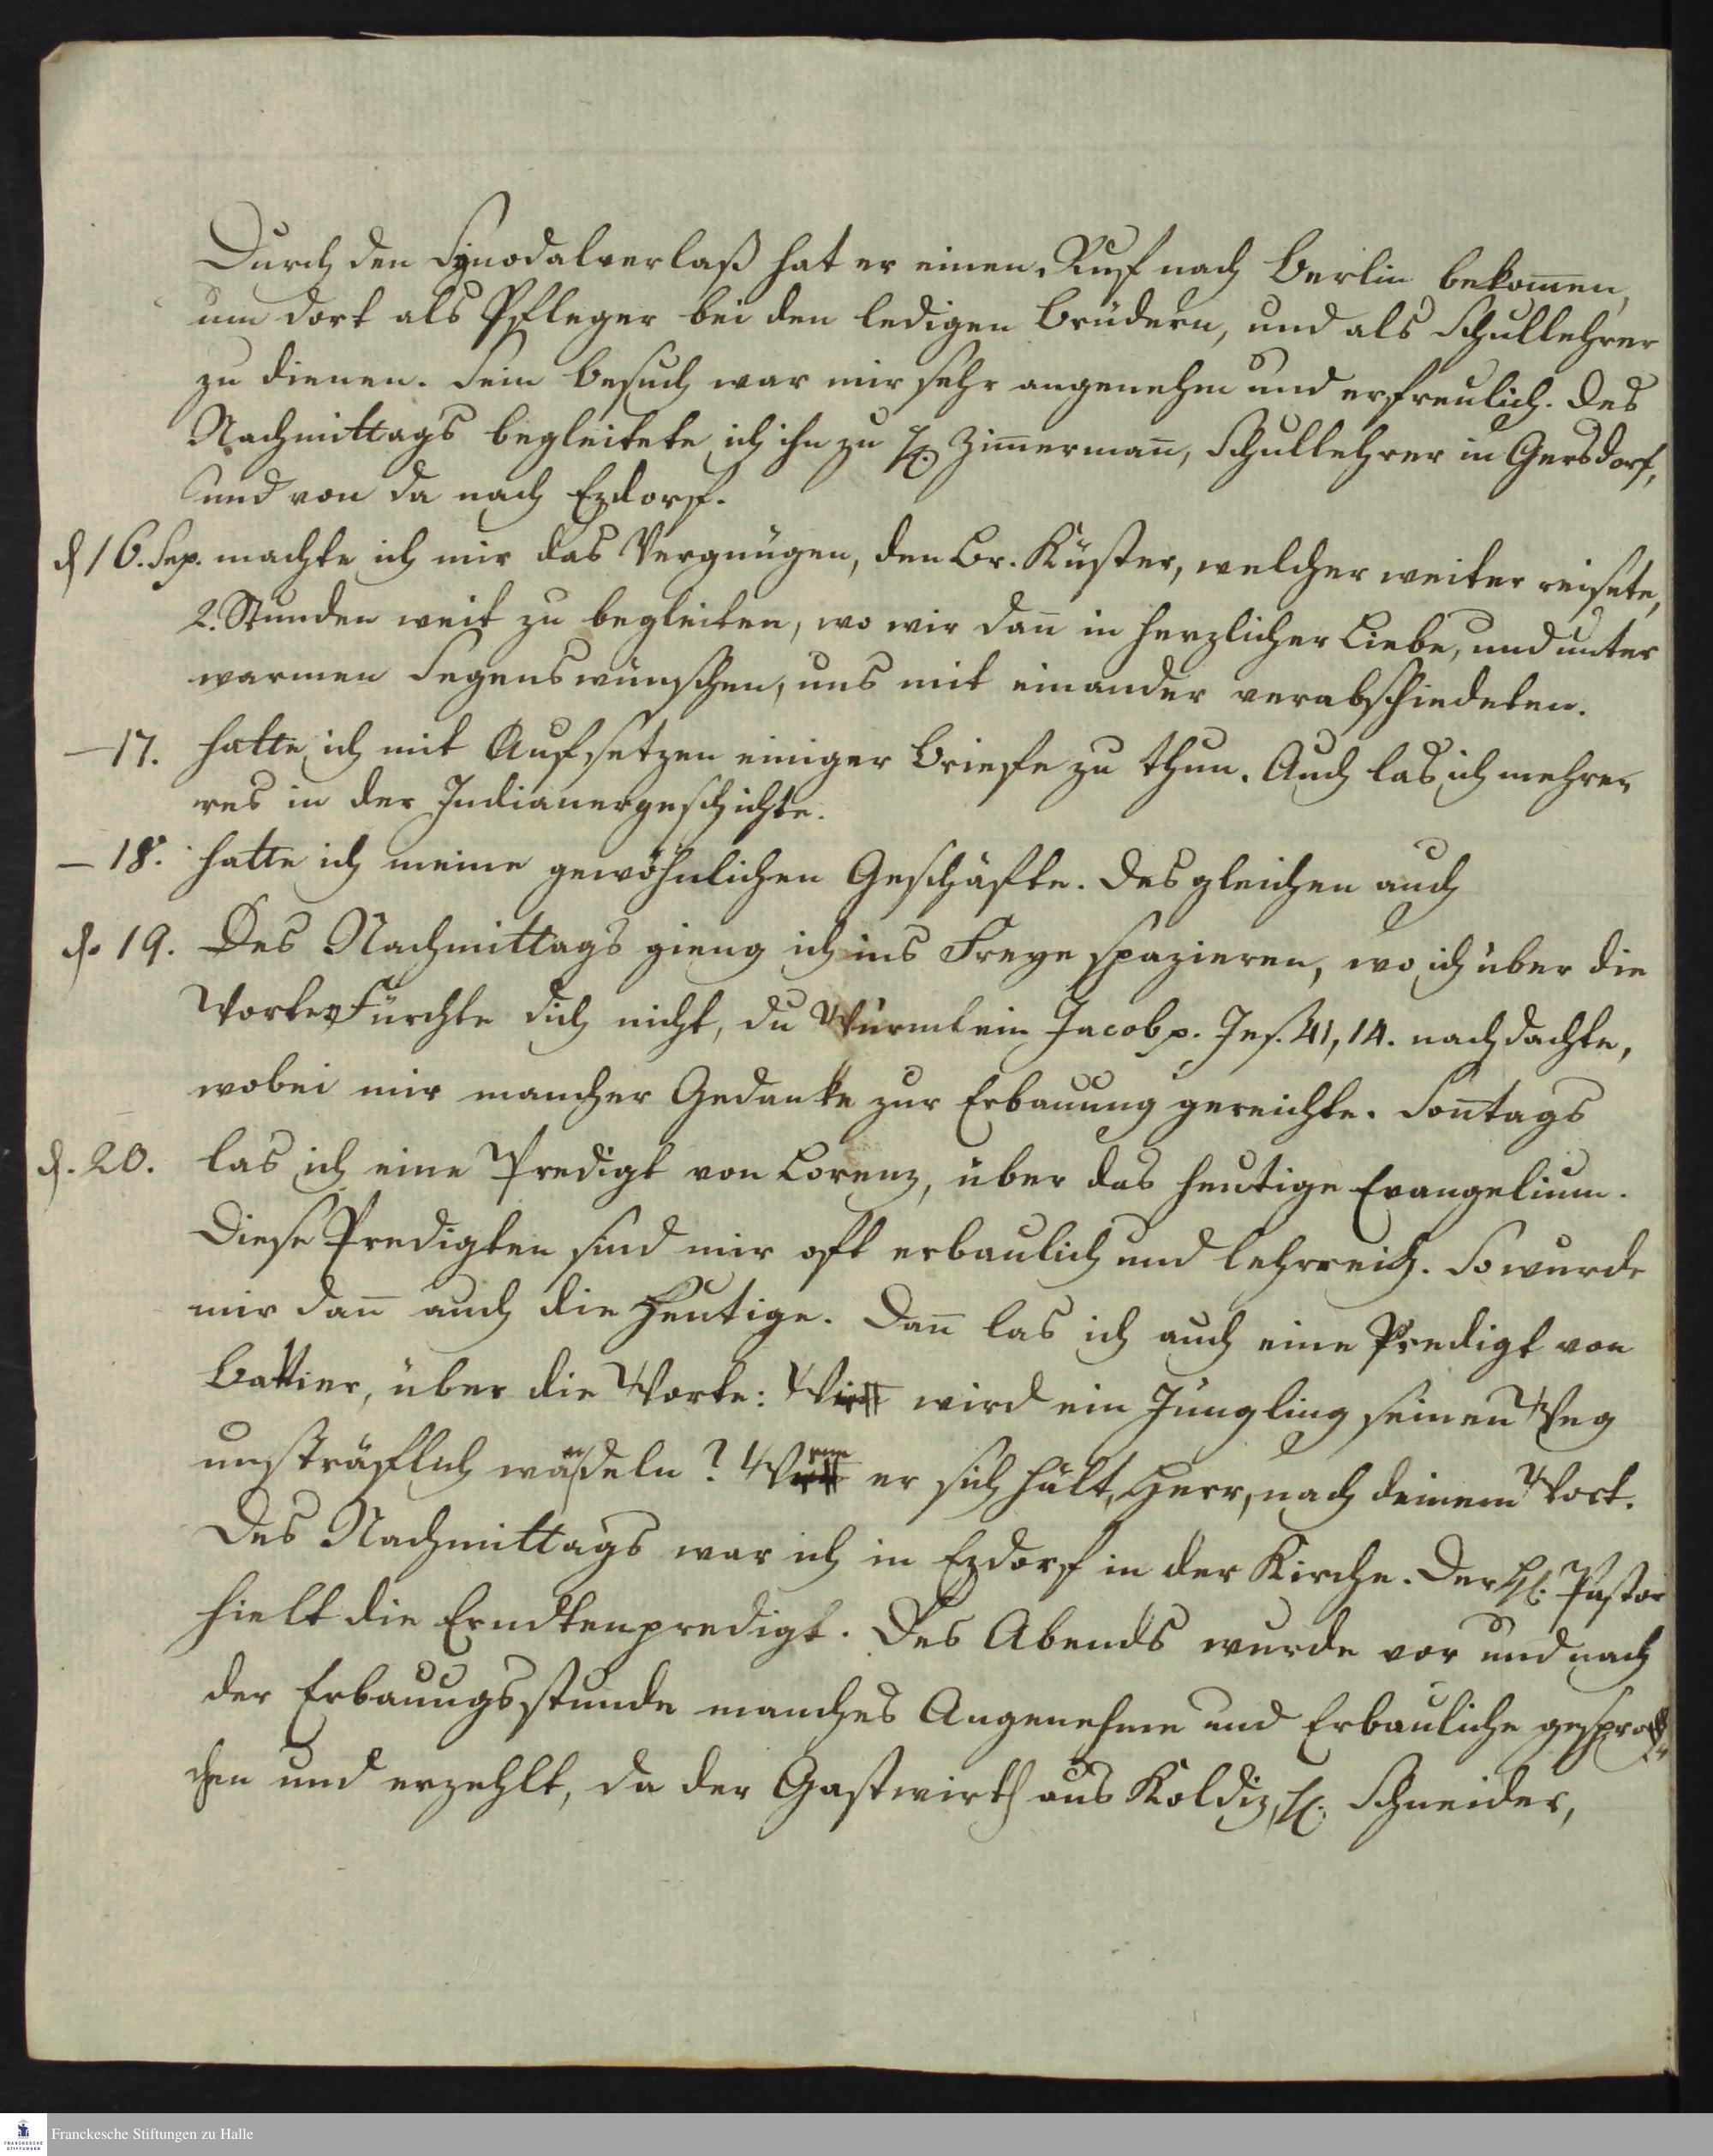 Durch den Synodalverlaß hat er einen Ruf nach Berlin bekom̅en,
um dort als Pfleger bei den ledigen Brüdern, und als Schullehrer
zu dienen. Sein Besuch war mir sehr angenehm und erfreulich. Des
Nachmittags begleitete ich ihn zu H. Zim̅erman̅, Schullehrer in Gersdorf,
und von da nach Ezdorf.
d. 16. Sep. machte ich mir das Vergnügen, den Br. Küster, welcher weiter reisete,
2. Stunden weit zu begleiten, wo wir dan̅ in herzlicher Liebe, und unter
warmen Segenswünschen, uns mit einander verabschiedeten.
— 17. hatte ich mit Aufsetzen einiger Briefe zu thun. Auch las ich mehre-
res in der Indianergeschichte.
— 18. hatte ich meine gewöhnlichen Geschäfte. Desgleichen auch
d. 19. Des Nachmittags gieng ich ins Freye spazieren, wo ich über die
Worte: Fürchte dich nicht, du Würmlein Jacob p. Jes. 41, 14. nachdachte,
wobei mir mancher Gedanke zur Erbauung gereichte. Son̅tags
d. 20. las ich eine Predigt von Lorenz, über das heutige Evangelium.
Diese Predigten sind mir oft erbaulich und lehrreich. So wurde
mir dan̅ auch die heutige. Dan̅ las ich auch eine Predigt von
Battier, über die Worte: Wie wird ein Jüngling seinen Weg
unsträflich wandeln? Wenn er sich hält, Herr, nach deinem Wort.
Des Nachmittags war ich in Ezdorf in der Kirche. Der H. Pastor
hielt die Erndtenpredigt. Des Abends wurde vor und nach
der Erbauungsstunde manches Angenehme und Erbauliche gespro-
chen und erzehlt, da der Gastwirth aus Koldiz, H. Schneider,
Franckesche Stiftungen zu Halle